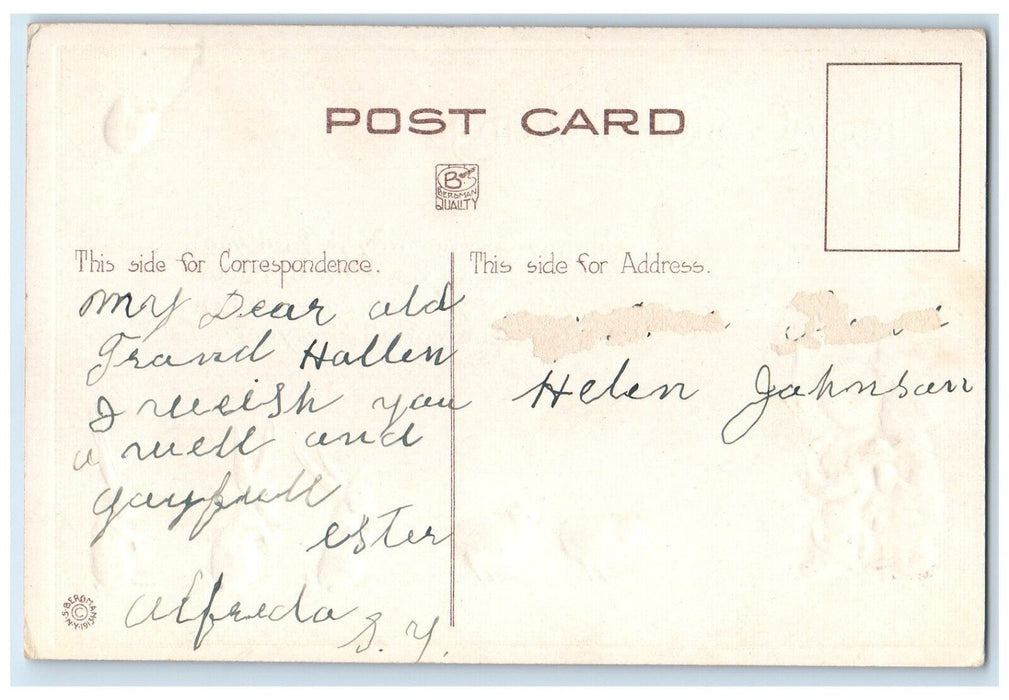 POST CARD
B
BERGMAN
QUALITY
This side for Correspondence.
This side for Address.
My Dear old
Frand Hallen
I weish you
a well and
gayfull
ester
Alfreda S. Y.
Helen Johnson
© BERGMAN 1913 N.Y.